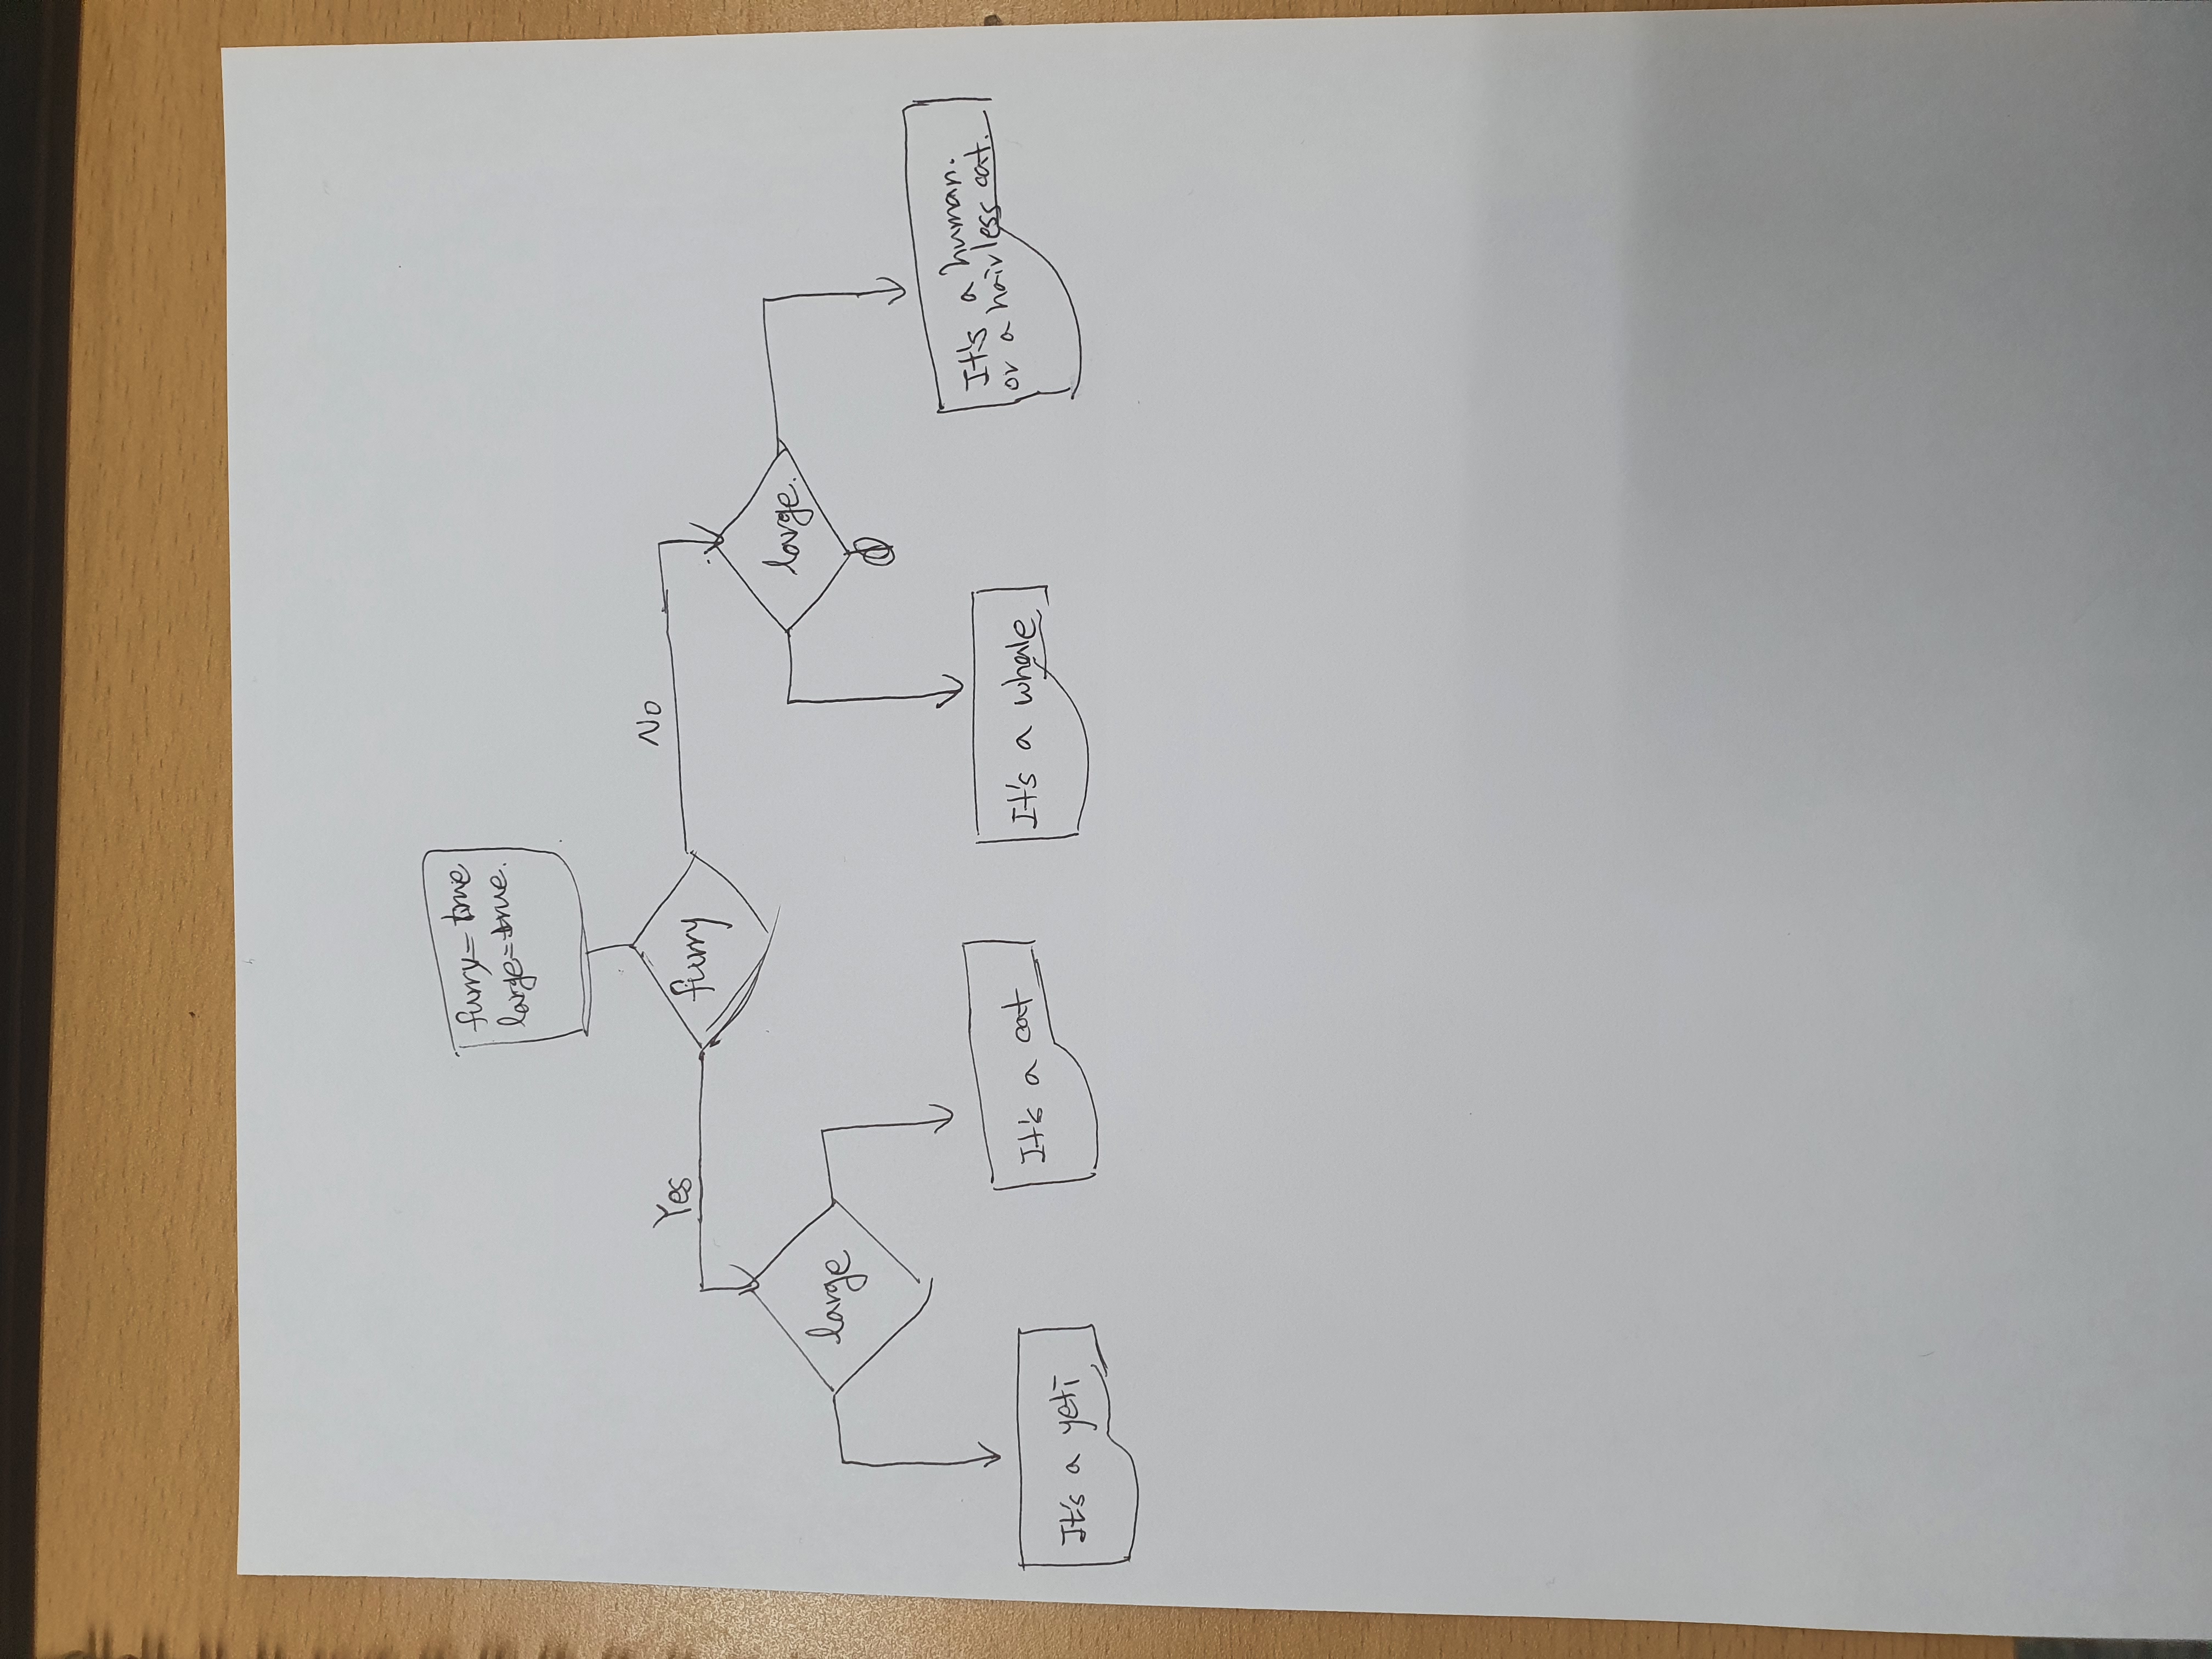 furry= true
large=true.
furry
Yes
No
large
large.
It's a yeti
It's a cat
It's a whale
It's a human.
or a hairless cat.